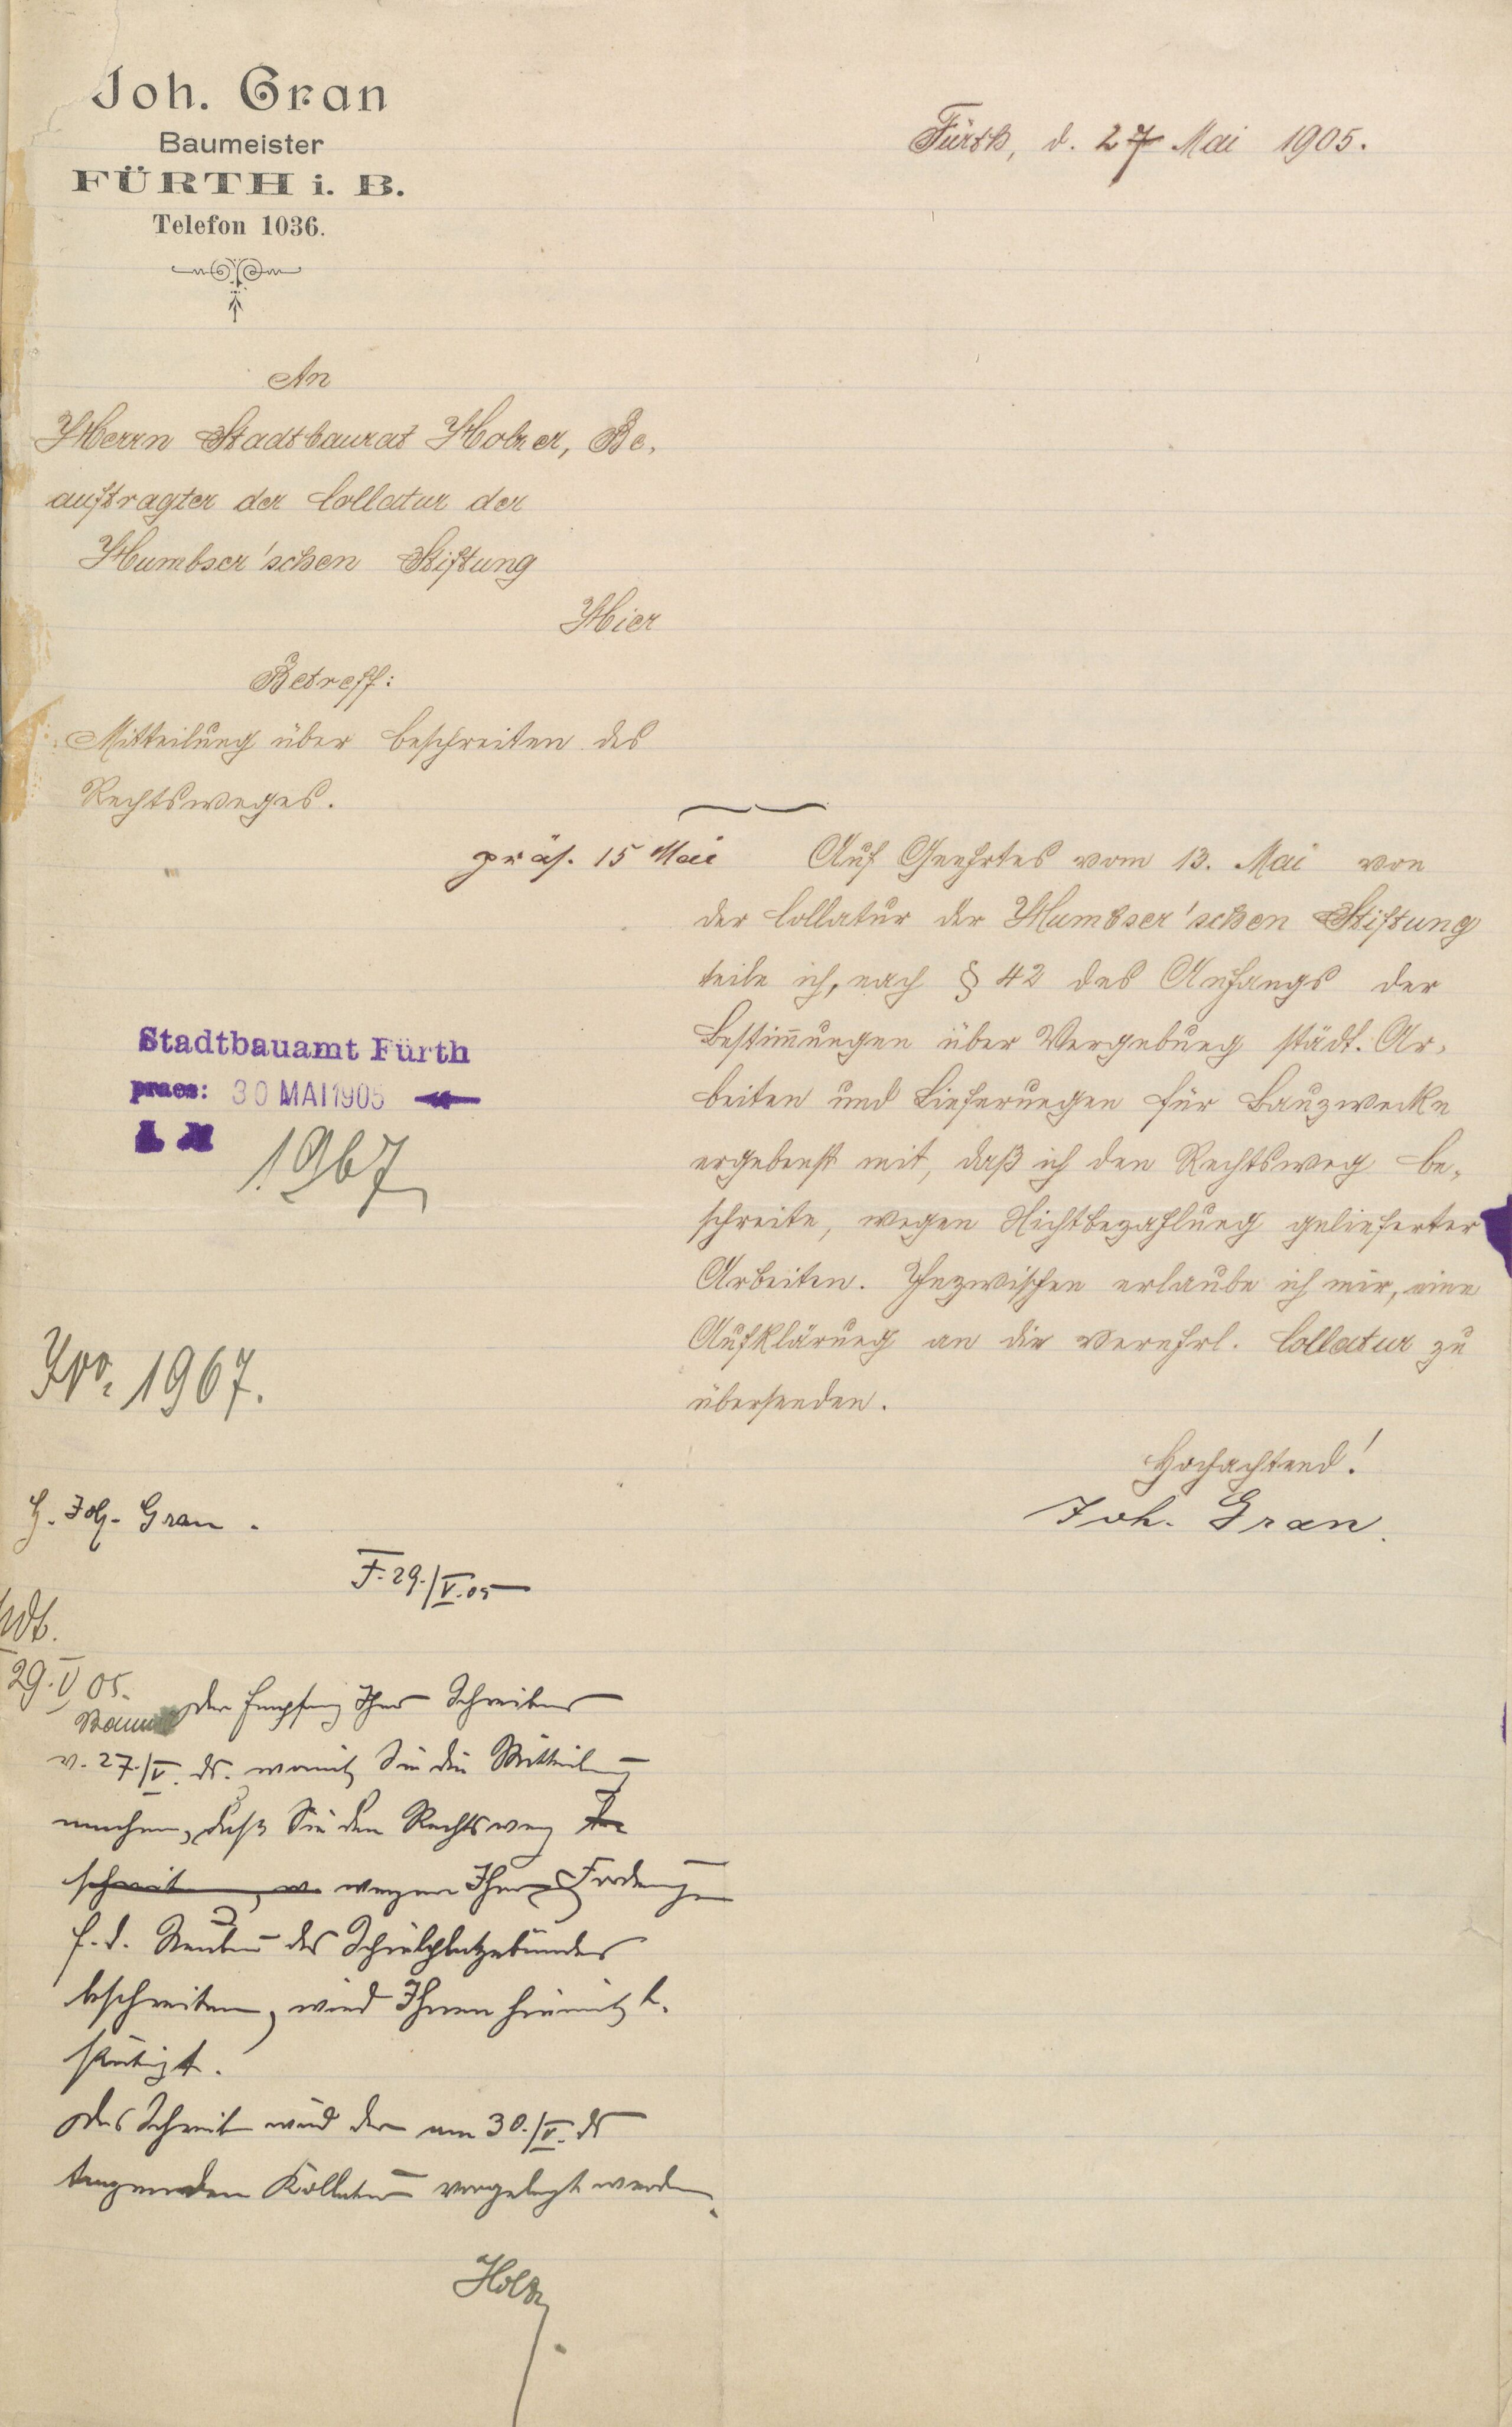 Joh. Gran
Baumeister
FÜRTH i. B.
Telefon 1036.
Fürth, d. 27 Mai 1905.
An
Herrn Stadtbaurat Holzer, Be-
auftragter der Collatur der
Humbser'schen Stiftung
Hier
Betreff:
Mitteilung über beschreiten des
Rechtsweges.
präs. 15 Mai
Auf Geehrtes vom 13. Mai von
der Collatur der Humbser'schen Stiftung
teile ich, nach § 42 des Anhangs der
Bestim̄ungen über Vergebung städt. Ar-
beiten und Lieferungen für Bauzwecke
ergebenst mit, daß ich den Rechtsweg be-
schreite, wegen Nichtbezahlung gelieferter
Arbeiten. Inzwischen erlaube ich mir, eine
Aufklärung an die verehrl. Collatur zu
übersenden.
Hochachtend!
Joh. Gran.
Stadtbauamt Fürth
praes: 30 MAI 1905
1967
No. 1967.
H. Joh. Gran.
F. 29./V. 05
29. V 05.
Der Empfang Ihres Schreibens
v. 27./V. ds. womit Sie die Mitteilung
machen, daß Sie den Rechtsweg be
schreiten, w wegen Ihrer Forderungen
f. d. Neubau des Schulplatzgebäudes
beschreiten, wird Ihnen hiemit be-
stätigt.
Das Schreiben wird der am 30./V. ds
tagenden Kollatur vorgelegt werden.
Holzer